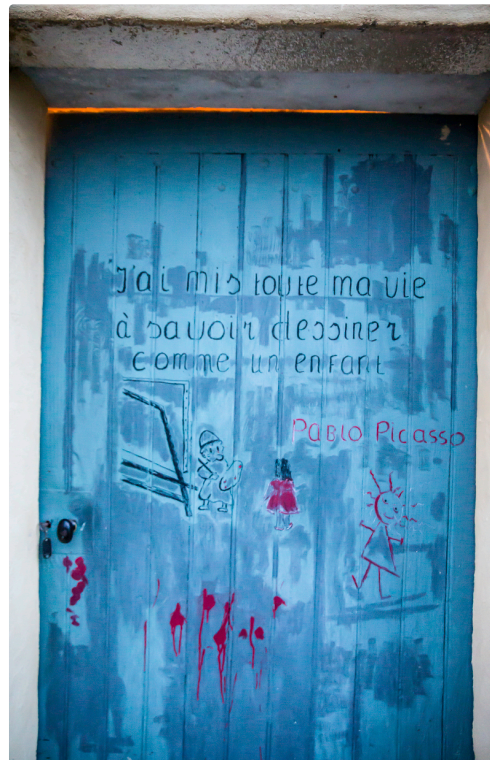 J'ai mis toute ma vie
à savoir dessiner
comme un enfant
Pablo Picasso